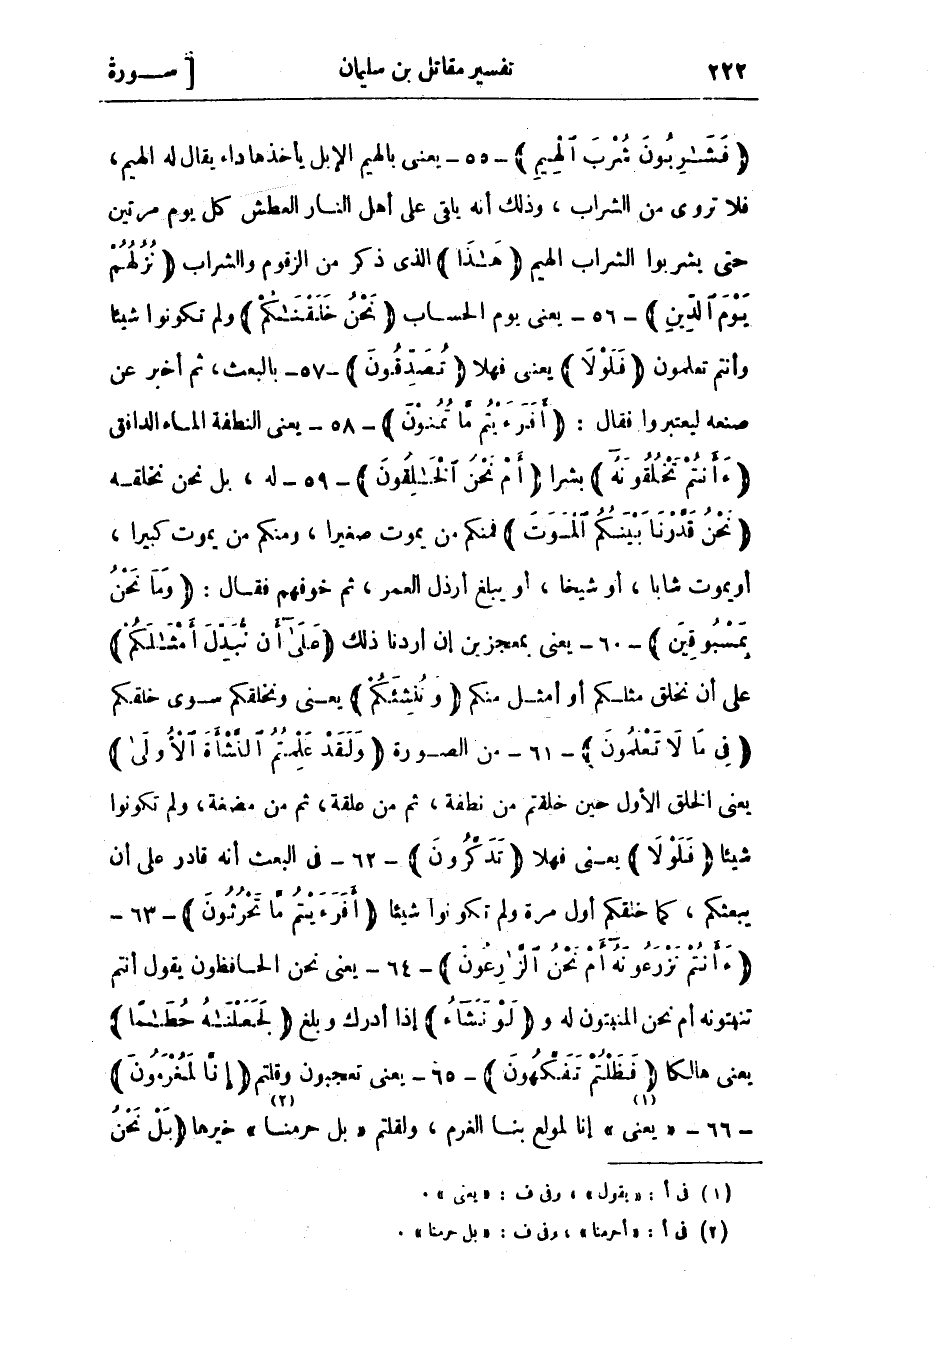 ٢٢٢ تفسير مقاتل بن سليمان [ سورة
﴿ فَشَـٰرِبُونَ شُرْبَ ٱلْهِيمِ ﴾ ـ ٥٥ ـ يعنى بالهيم الإبل يأخذها داء يقال له الهيم ،
فلا تروى من الشراب ، وذلك أنه يلقى على أهل النار العطش كل يوم مرتين
حتى يشربوا الشراب الهيم ﴿ هَـٰذَا ﴾ الذى ذكر من الزقوم والشراب ﴿ نُزُلُهُمْ
يَوْمَ ٱلدِّينِ ﴾ ـ ٥٦ ـ يعنى يوم الحساب ﴿ نَحْنُ خَلَقْنَـٰكُمْ ﴾ ولم تكونوا شيئا
وأنتم تعلمون ﴿ فَلَوْلَا ﴾ يعنى فهلا ﴿ تُصَدِّقُونَ ﴾ ـ ٥٧ ـ بالبعث، ثم أخبر عن
صنعه ليعتبروا فقال : ﴿ أَفَرَءَيْتُم مَّا تُمْنُونَ ﴾ ـ ٥٨ ـ يعنى النطفة الماء الدافق
﴿ ءَأَنتُمْ تَخْلُقُونَهُ ﴾ بشرا ﴿ أَمْ نَحْنُ ٱلْخَـٰلِقُونَ ﴾ ـ ٥٩ ـ له ، بل نحن نخلقه
﴿ نَحْنُ قَدَّرْنَا بَيْنَكُمُ ٱلْمَوْتَ ﴾ فمنكم من يموت صغيرا ، ومنكم من يموت كبيرا ،
أو يموت شابا ، أو شيخا ، أو يبلغ أرذل العمر ، ثم خوفهم فقال : ﴿ وَمَا نَحْنُ
بِمَسْبُوقِينَ ﴾ ـ ٦٠ ـ يعنى بمعجزين إن أردنا ذلك ﴿ عَلَىٰٓ أَن نُّبَدِّلَ أَمْثَـٰلَكُمْ ﴾
على أن نخلق مثلكم أو أمثل منكم ﴿ وَنُنشِئَكُمْ ﴾ يعنى ونخلقكم سوى خلقكم
﴿ فِى مَا لَا تَعْلَمُونَ ﴾ ـ ٦١ ـ من الصورة ﴿ وَلَقَدْ عَلِمْتُمُ ٱلنَّشْأَةَ ٱلْأُولَىٰ ﴾
يعنى الخلق الأول حين خلقتم من نطفة ، ثم من علقة ، ثم من مضغة ، ولم تكونوا
شيئا ﴿ فَلَوْلَا ﴾ يعنى فهلا ﴿ تَذَكَّرُونَ ﴾ ـ ٦٢ ـ فى البعث أنه قادر على أن
يبعثكم ، كما خلقكم أول مرة ولم تكونوا شيئا ﴿ أَفَرَءَيْتُم مَّا تَحْرُثُونَ ﴾ ـ ٦٣ ـ
﴿ ءَأَنتُمْ تَزْرَعُونَهُٓ أَمْ نَحْنُ ٱلزَّٰرِعُونَ ﴾ ـ ٦٤ ـ يعنى نحن الحافظون يقول أنتم
تنبتونه أم نحن المنبتون له و ﴿ لَوْ نَشَآءُ ﴾ إذا أدرك وبلغ ﴿ لَجَعَلْنَـٰهُ حُطَـٰمًا ﴾
يعنى هالكا ﴿ فَظَلْتُمْ تَفَكَّهُونَ ﴾ ـ ٦٥ ـ يعنى تعجبون وقلتم ﴿ إِنَّا لَمُغْرَمُونَ ﴾
ـ ٦٦ ـ « يعنى »(١) إنا لمولع بنا الغرم ، ولقلتم « بل حرمنا »(٢) خيرها ﴿ بَلْ نَحْنُ
(١) فى أ : « يقول » ، وفى ف : « يعنى » .
(٢) فى أ : « أحرمنا » ، وفى ف : « بل حرمنا » .